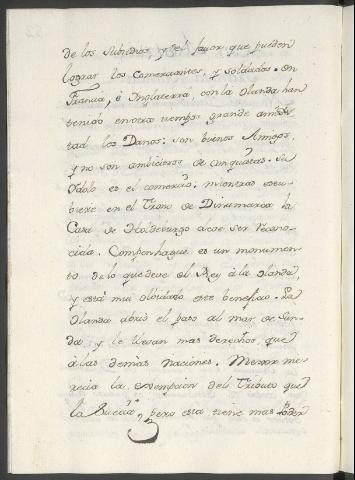 de los subsidios, y el favor que pueden
lograr los Comerciantes, y soldados. En
Francia, é Inglaterra, con la Olanda, han
tenido en otro tiempo grande amis-
tad los Danos: son buenos Amigos,
y no son ambiciosos de Conquistas. Su
Idolo es el comercio; mientras estu-
biere en el Trono de Dinamarca la
Casa de Holdeburgo acaé ser recono-
cida. Compenhague es un monumen-
to de lo que deve el Rey à la Olanda,
y está mui olvidado este beneficio. La
Olanda abrió el paso al mar de Sun-
da, y le llevan mas derechos, que
à las demàs naciones. Menor me-
recia la esempcion del Tributo que
la Suecia, pero esta tiene mas poder